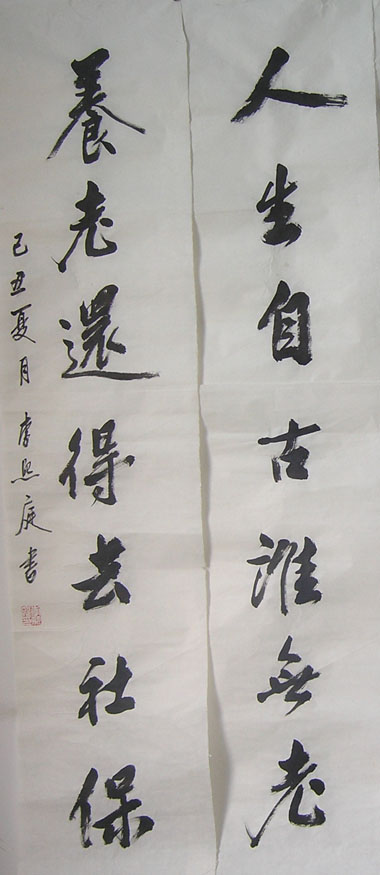 人生自古誰無老
養老還得去社保
己丑夏月 李興庭書